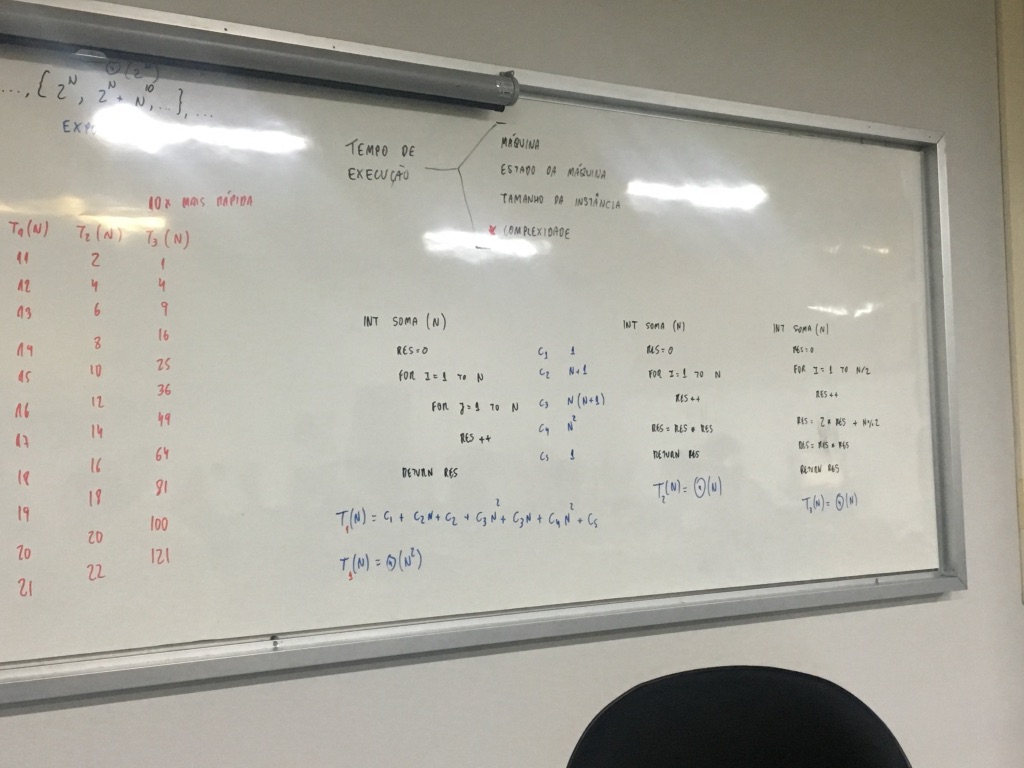 Θ(2^N)
..., {2^N, 2^N + N^10, ...}, ...
TEMPO DE
EXECUÇÃO
MÁQUINA
ESTADO DA MÁQUINA
TAMANHO DA INSTÂNCIA
* COMPLEXIDADE
10x MAIS RÁPIDA
T1(N) T2(N) T3(N)
11 2 1
12 4 4
13 6 9
14 8 16
15 10 25
16 12 36
17 14 49
18 16 64
19 18 81
20 20 100
21 22 121
INT SOMA (N)
RES=0 C1 1
FOR I=1 TO N C2 N+1
FOR J=1 TO N C3 N(N+1)
RES ++ C4 N²
RETURN RES C5 1
T1(N) = C1 + C2N + C2 + C3N² + C3N + C4N² + C5
T1(N) = Θ(N²)
INT SOMA (N)
RES=0
FOR I=1 TO N
RES++
RES = RES * RES
RETURN RES
T2(N) = Θ(N)
INT SOMA (N)
RES=0
FOR I=1 TO N/2
RES++
RES= 2 * RES + N%2
RES= RES * RES
RETURN RES
T3(N) = Θ(N)